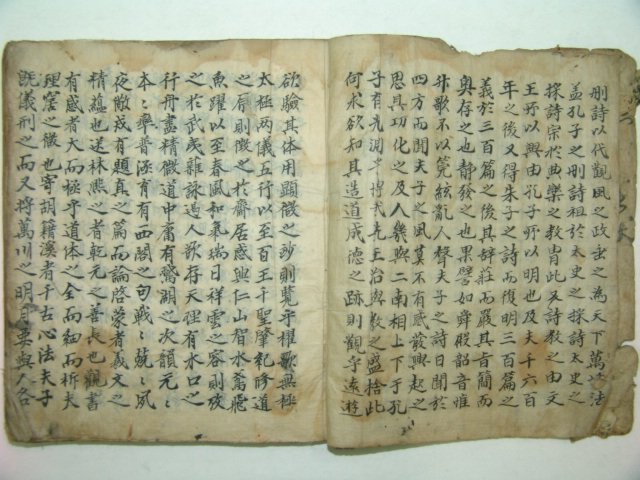 刪詩以代觀風之政垂之為天下萬世法
盖孔子之刪詩祖於太史之採詩太史之
採詩宗於典樂之教胄此詩教之由文
王所以興由孔子所以明也及夫千六百
年之後又得朱子之詩而復明三百篇之
義於三百篇之後其辭莊而嚴其旨簡而
奧存之也靜發之也果譬如舜殿韶音惟
升歌不以筦絃亂人聲夫子之詩日聞於
四方而聞夫子之風莫不有感發興起之
思其功化之及人幾與二南相上下于孔
子有光治與教之盛捨此
何求欲知其造道成德之跡則觀乎遠遊
欲驗其体用顯微之妙則覽乎櫂歌無極
太極两儀五行以至百王千聖肇紀修道
之序則徵之於齋居感興仁山智水鳶飛
魚躍以至春風和氣瑞日祥雲之容則攷
之於武夷雜詠遏人欲存天理有水口之
行舟盡精微道中庸有鵞湖之次韻元〻
本〻畢普涵育有西閣之句戰〻兢〻夙
夜儆戒有題真之篇而論啓蒙者義文之
精蘊也送林熙之者乾元之善長也觀書
有感者大而極乎道体之全而細而析夫
理窟之微也寄胡籍溪者千古心法夫子
既儀刑之而又將萬川之明月要與人各